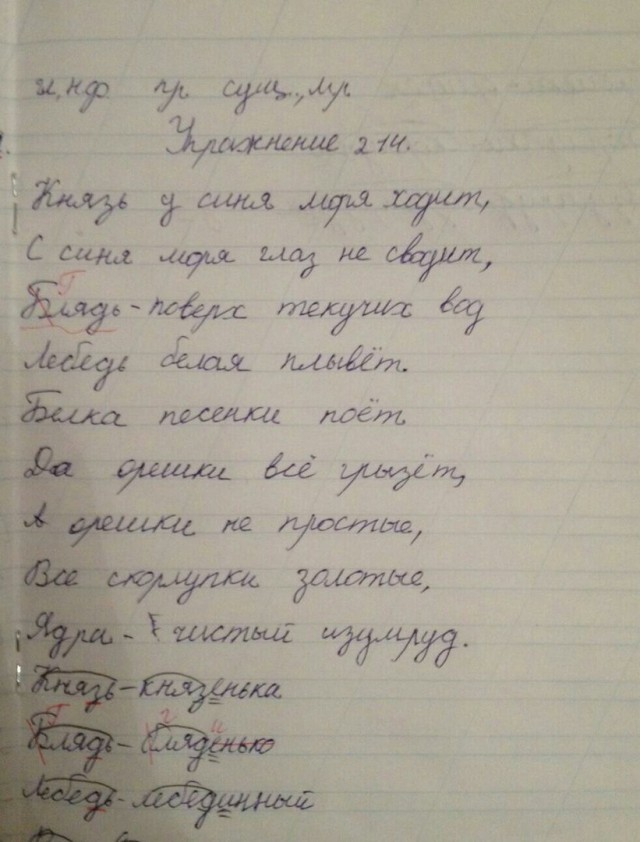 и, нф пр сущ., мр
Упражнение 214.
Князь у синя моря ходит,
С синя моря глаз не сводит,
Г
Блядь - поверх текучих вод
Лебедь белая плывёт.
Белка песенки поёт
Да орешки всё грызёт,
А орешки не простые,
Все скорлупки золотые,
Ядра - чистый изумруд.
Князь - князенька
Г г и
Блядь - бляденько
Лебедь - лебединный